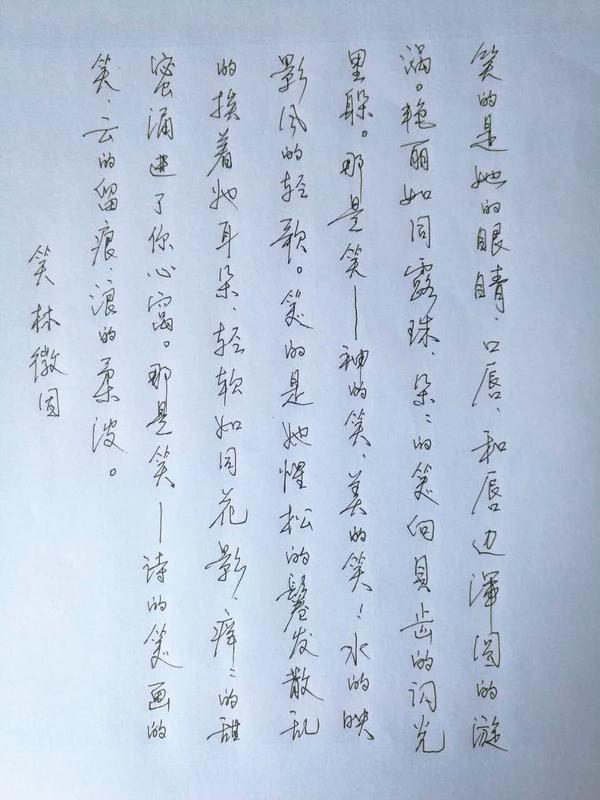 笑的是她的眼睛、口唇、和唇边浑圆的漩
涡。艳丽如同露珠、朵ミ的笑向贝齿的闪光
里躲。那是笑——神的笑、美的笑！水的映
影风的轻歌。笑的是她惺松的鬈发散乱
的挨着她耳朵、轻软如同花影、痒ミ的甜
蜜涌进了你心窝。那是笑——诗的笑画的
笑、云的留痕、浪的柔波。
笑 林徽因